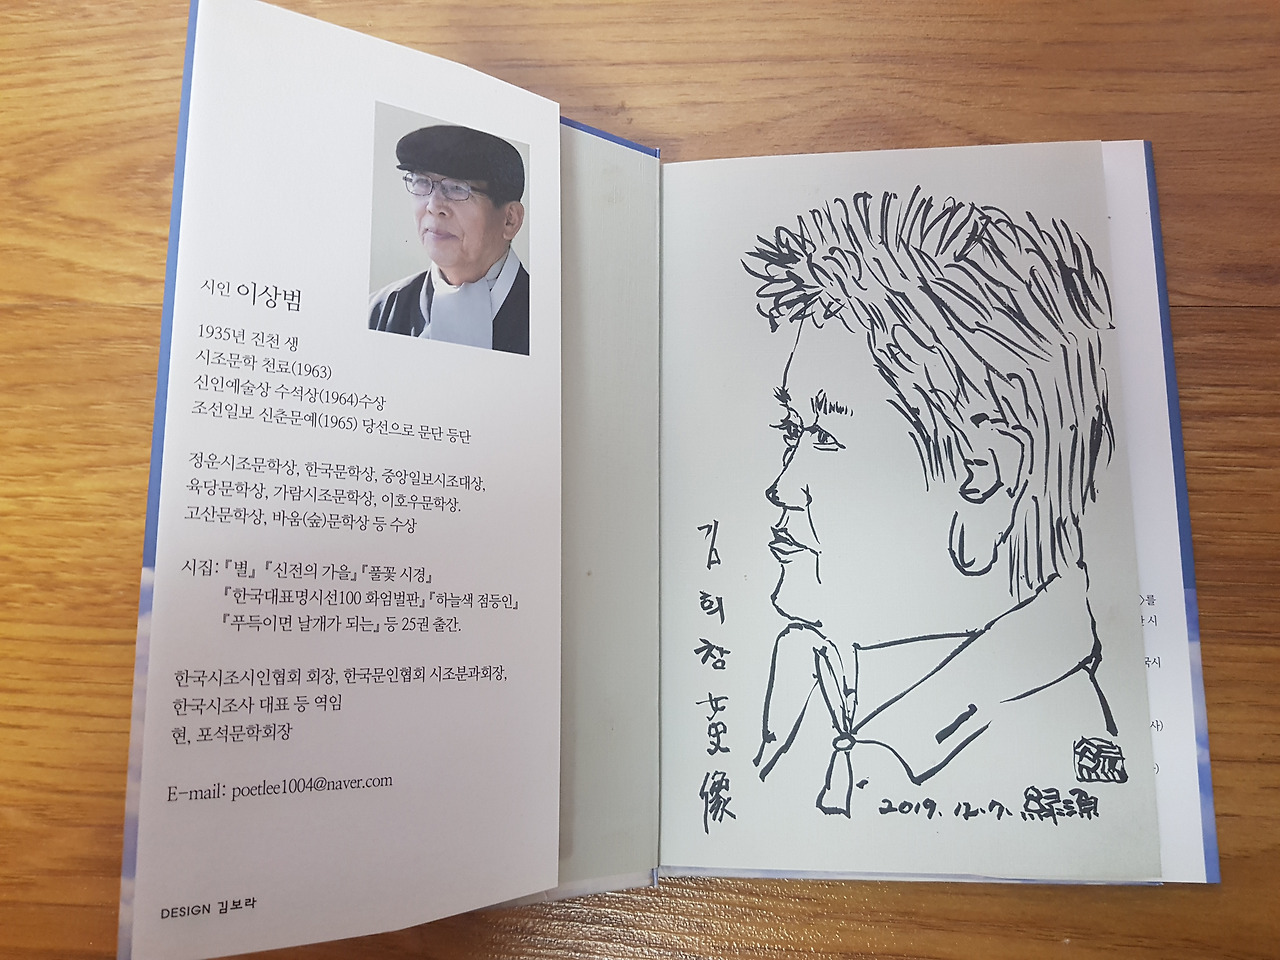 시인 이상범
1935년 진천 생
시조문학 천료(1963)
신인예술상 수석상(1964)수상
조선일보 신춘문예(1965) 당선으로 문단 등단
정운시조문학상, 한국문학상, 중앙일보시조대상,
육당문학상, 가람시조문학상, 이호우문학상.
고산문학상, 바움(숲)문학상 등 수상
시집: 『별』 『신전의 가을』 『풀꽃 시경』
『한국대표명시선100 화엄벌판』 『하늘색 점등인』
『푸득이면 날개가 되는』 등 25권 출간.
한국시조시인협회 회장, 한국문인협회 시조분과회장,
한국시조사 대표 등 역임
현, 포석문학회장
E-mail: poetlee1004@naver.com
DESIGN 김보라
김희창 女史 像
2019. 12. 7. 綠源
를
시
시
사)